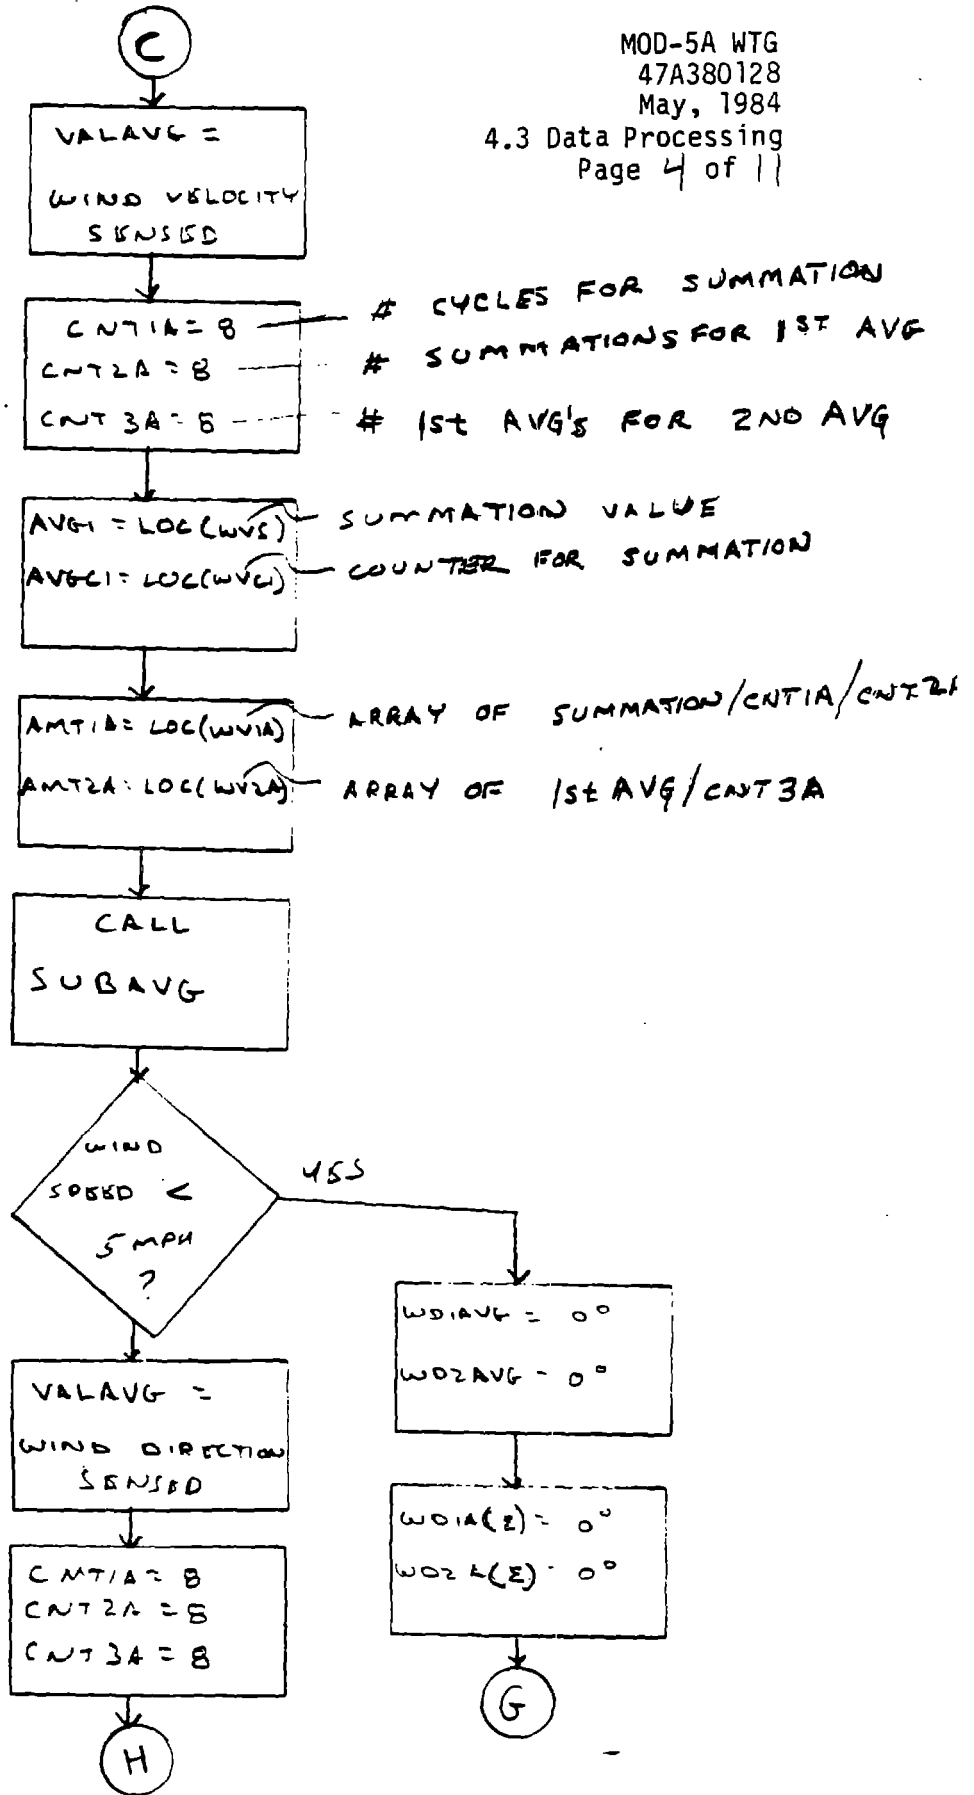 C
MOD-5A WTG
47A380128
May, 1984
4.3 Data Processing
Page 4 of 11
VALAVG =
WIND VELOCITY
SENSED
CNT1A = 8
# CYCLES FOR SUMMATION
CNT2A = 8
# SUMMATIONS FOR 1ST AVG
CNT3A = 8
# 1st AVG'S FOR 2ND AVG
AVG1 = LOC(WVS)
SUMMATION VALUE
AVGC1 = LOC(WVC1)
COUNTER FOR SUMMATION
AMT1A = LOC(WV1A)
ARRAY OF SUMMATION/CNT1A/CNT2A
AMT2A = LOC(WV2A)
ARRAY OF 1st AVG/CNT3A
CALL
SUBAVG
WIND
SPEED <
5 MPH
?
YES
WD1AVG = 0°
WD2AVG = 0°
VALAVG =
WIND DIRECTION
SENSED
WD1A(Σ) = 0°
WD2A(Σ) = 0°
CNT1A = 8
CNT2A = 8
CNT3A = 8
G
H